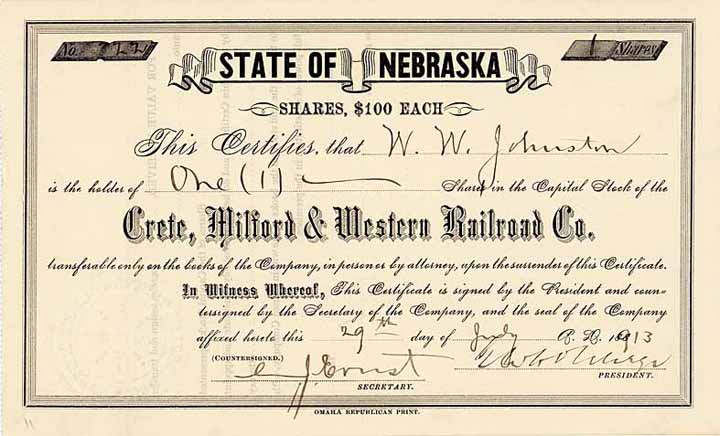 No. 22
1 Shares
STATE OF NEBRASKA
SHARES, $100 EACH
This Certifies, that W. W. Johnston
is the holder of One (1) Shares in the Capital Stock of the
Crete, Milford & Western Railroad Co.
transferable only on the books of the Company, in person or by attorney, upon the surrender of this Certificate.
In Witness Whereof, This Certificate is signed by the President and coun-
tersigned by the Secretary of the Company, and the seal of the Company
affixed hereto this 29th day of July A. D. 1913
(COUNTERSIGNED.)
C J Ernst
SECRETARY.
PRESIDENT.
OMAHA REPUBLICAN PRINT.
11